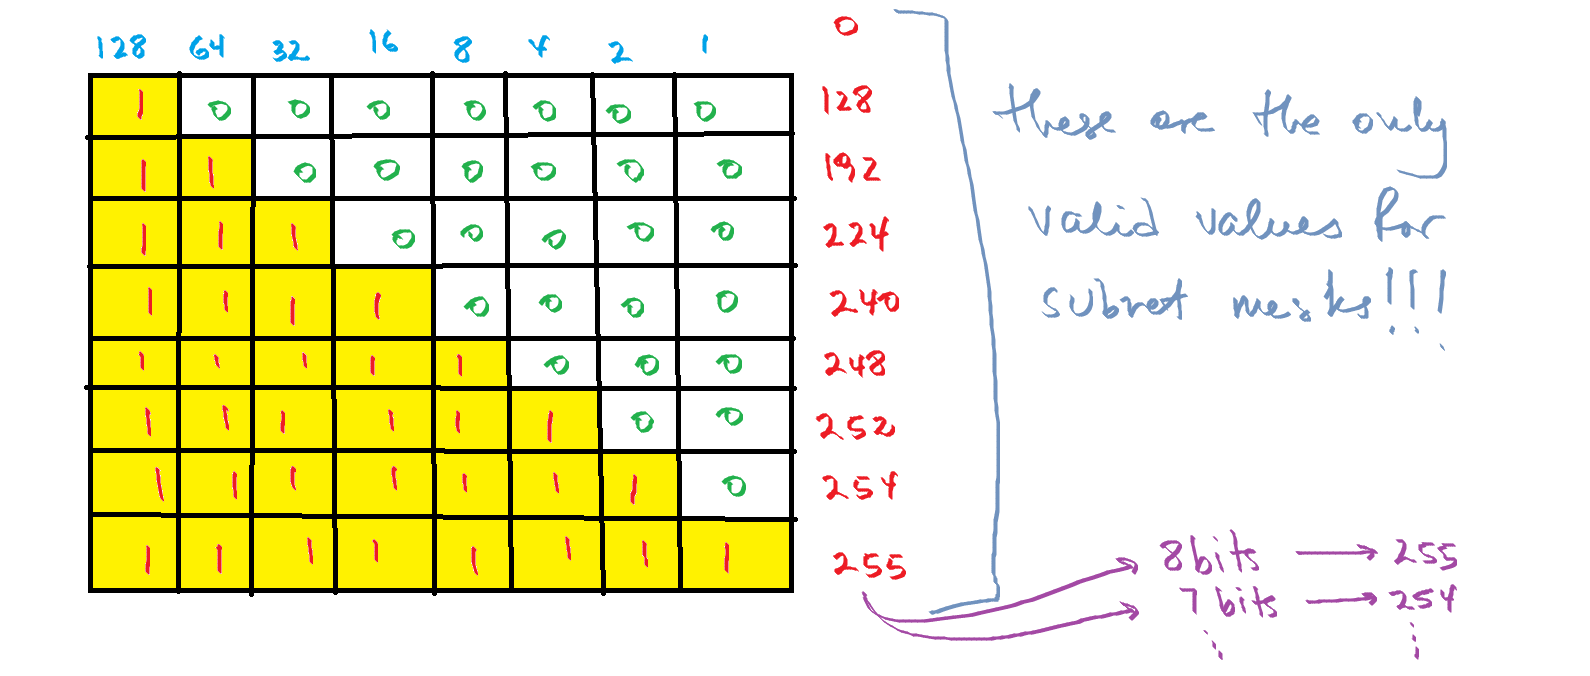 0
128 64 32 16 8 4 2 1
1 0 0 0 0 0 0 0 128
1 1 0 0 0 0 0 0 192
1 1 1 0 0 0 0 0 224
1 1 1 1 0 0 0 0 240
1 1 1 1 1 0 0 0 248
1 1 1 1 1 1 0 0 252
1 1 1 1 1 1 1 0 254
1 1 1 1 1 1 1 1 255
these are the only
valid values for
subnet masks!!!
8 bits → 255
7 bits → 254
⋮ ⋮